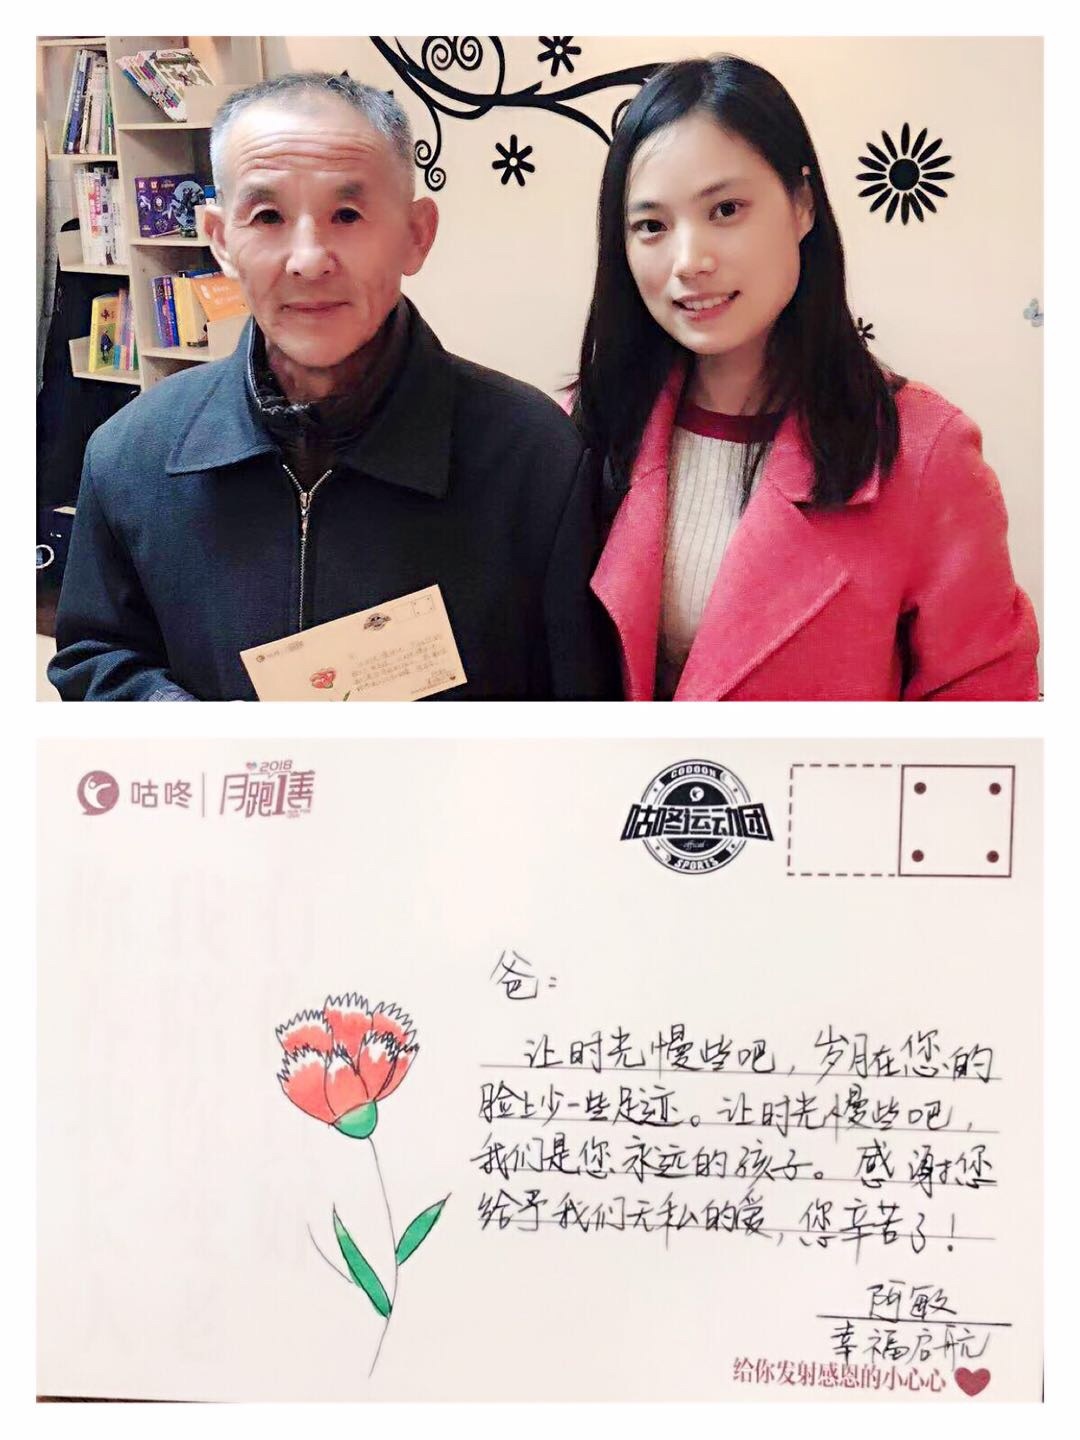 咕咚
2018
月跑1善
CODOON
咕咚运动团
official
SPORTS
爸：
让时光慢些吧，岁月在您的
脸上少一些足迹。让时光慢些吧，
我们是您永远的孩子。感谢您
给予我们无私的爱，您辛苦了！
阿敏
幸福启航
给你发射感恩的小心心